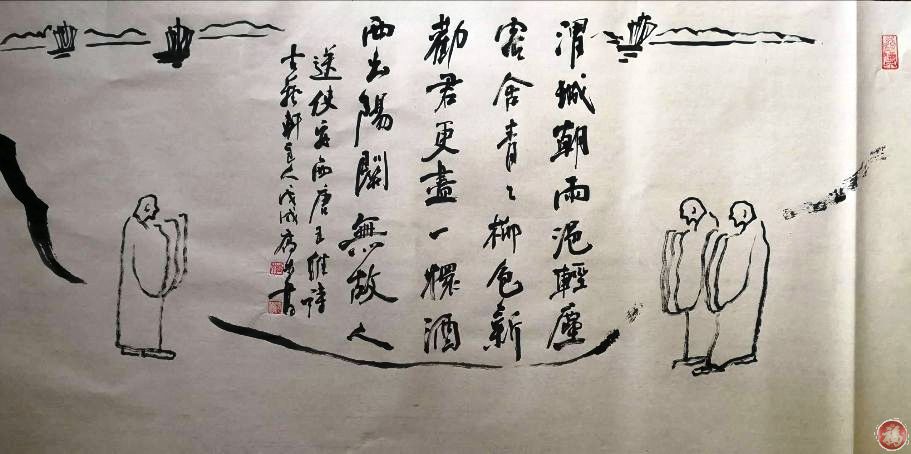 渭城朝雨浥輕塵
客舍青々柳色新
勸君更盡一杯酒
西出陽關無故人
送使安西唐王維詩
軒主人戊戌書
福